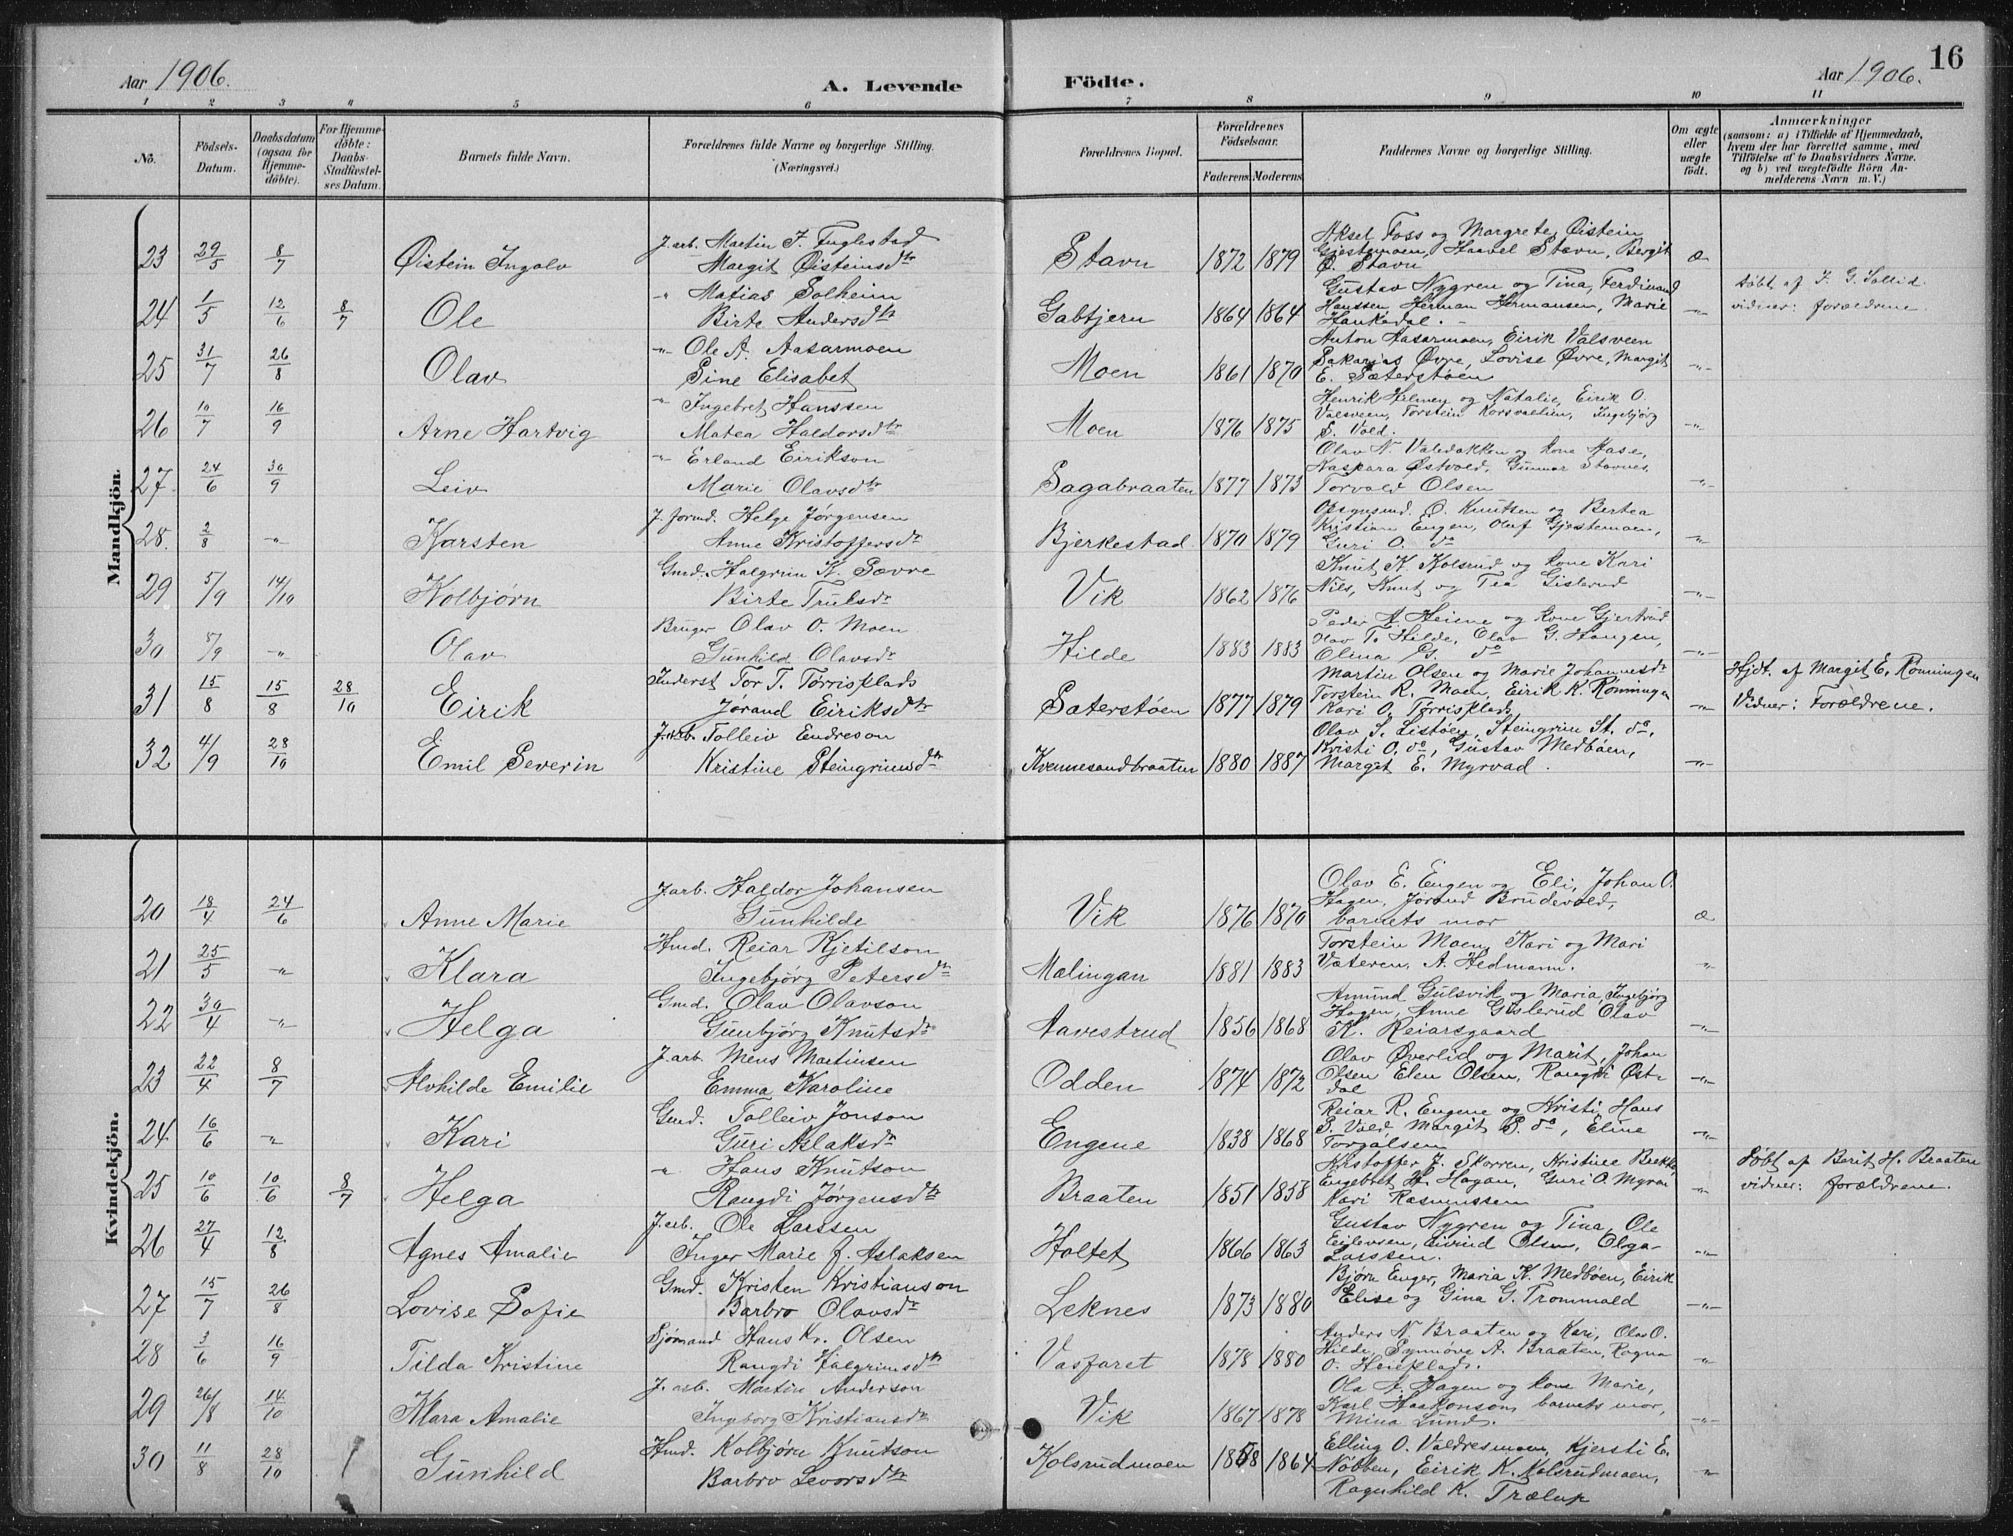 16
Aar 1906.
A. Levende Födte.
Aar 1906.
1 2 3 4 5 6 7 8 9 10 11
No.
Födsels-Datum.
Daabsdatum (ogsaa for Hjemme-döbte).
For Hjemme-döbte: Daabs-Stadfæstel-ses Datum.
Barnets fulde Navn.
Forældrenes fulde Navne og borgerlige Stilling. (Næringsvei.)
Forældrenes Bopæl.
Forældrenes Födselsaar.
Faderens. Moderens.
Faddernes Navne og borgerlige Stilling.
Om ægte eller uægte födt.
Anmærkninger
(saasom: a) i Tilfælde af Hjemmedaab, hvem der har forrettet samme, med Tilföielse af to Daabsvidners Navne. og b) ved uægtefödte Börn An-melderens Navn m. V.)
Mandkjön.
23 29/5 8/7 Øistein Ingolv J. arb. Martin F. Fuglestad Margit Øisteinsdtr Stavn 1872 1879 Aksel Foss og Margrete, Øistein Gjestemoen, Haavel Stavn, Bergit Ø. Stavn æ
24 1/5 12/6 8/7 Ole " Matias Solheim Birte Andersdtr Gabtjern 1864 1864 Gustav Nygren og Tina, Ferdinand Hanssen, Herman Hermansen, Marie Haukedal. -"- døbt af F. G. Sollid. vidner: forældrene
25 31/7 26/8 Olav -"- Ole A. Aasarmoen Sine Elisabet Moen 1861 1870 Anton Aasarmoen, Eirik Valsveen Sakarias Øvre, Lovise Øvre, Margit E. Sæterstøen -"-
26 10/7 16/9 Arne Hartvig " Ingebret Hanssen Matea Haldorsdtr Moen 1876 1875 Henrik Helmey og Natalie, Eirik O. Valsveen, Torstein Korsvallien, Ingebjørg S. Vold. -"-
27 24/6 30/9 Leiv " Erland Eirikson Marie Olavsdtr Sagabraaten 1877 1873 Olav N. Valdakken og kone Aase, Kaspara Østvold, Gunnar Stavnes, Torvald Olsen -"-
28. 2/8 -"- Karsten J. formd. Helge Jørgensen Anne Kristoffersdtr Bjerkestad 1870 1879 O. Knutsen og Bertea Kristian Engen, Olaf Gjestemoen, Guri O. do -"-
29 5/9 14/10 Kolbjørn Gmd. Halgrim K. Sævre Birte Trulsdr Vik 1862 1876 Knut K. Kolsrud og kone Kari Nils, Knut og Tea Gislerud -"-
30 5/9 -"- Olav Bruger Olav O. Moen Gunhild Olavsdr Hilde 1883 1883 Peder A. Heiene og kone Gjertrud Olav T. Hilde, Olav G. Haugen, Olina G. do -"-
31 15/8 15/8 28/10 Eirik Inderst Tor T. Tørrisplads Jorand Eiriksdtr Sæterstøen 1877 1879 Martin Olsen og Marie Johannesdr Torstein R. Moen, Eirik K. Rønningen Kari O. Tørrisplads -"- Hjdt. af Margit E. Rønningen Vidner: Forældrene.
32 4/9 28/10 Emil Severin J. arb. Tolleiv Endreson Kristine Steingrimsdtr Kvennesandbraaten 1880 1887 Olav S. Listøen, Steingrim St. do, Kristi O. do, Gustav Medbøen, Marget E. Myrvad. -"-
Kvindekjön.
20 18/4 24/6 Anne Marie J. arb. Haldor Johansen Gunhilde Vik 1876 1870 Olav E. Engen og Eli, Johan O. Hagen, Jørand Brudevold, barnets mor æ
21 25/5 -"- Klara Hmd. Reiar Kjetilson Ingebjørg Petersdtr Malingan 1881 1883 Torstein Moen, Kari og Mari Væteren, A. Hedmann. "
22 30/4 -"- Helga Gmd. Olav Olavson Gunbjørg Knutsdr Aavestrud 1856 1868 Amund Gulsvik og Maria, Ingebjørg Hagen, Anne Gislerud Olav K. Reiarsgaard -"-
23 22/4 8/7 Alvhilde Emilie J. arb. Mens Martinsen Emma Karoline Odden 1874 1872 Olav Øverlid og Marit, Johan Olsen Elen Olsen, Rangdi Øst-dal -"-
24 16/6 -"- Kari Gmd. Tolleiv Jonson Guri Aslaksdr Engene 1838 1868 Reiar R. Engene og Kristi, Hans P. Vold Margit P. do, Eline Torgalsen -"-
25 10/6 10/6 8/7 Helga " Hans Knutson Rangdi Jørgensdtr Braaten 1851 1858 Kristoffer J. Skorren, Kristine Brekke, Engebret H. Hagan, Guri O. Myran Kari Rasmussen -"- Døbt af Berit H. Braaten vidner: forældrene.
26 27/4 12/8 Agnes Amalie J. arb. Ole Larssen Inger Marie J. Aslaksen Holtet 1866 1863 Gustav Nygren og Tina, Ole Eilevsen, Eivind Olsen, Olga Larssen. -"-
27 15/7 26/8 Lovise Sofie Gmd. Kristen Kristianson Barbro Olavsdr Leknes 1873 1880 Bjørn Enger, Maria K. Medbøen, Eirik Elise og Gina G. Trommald -"-
28 3/6 16/9 Tilda Kristine Sjømand Hans Kr. Olsen Rangdi Halgrimsdtr Vasfaret 1878 1880 Anders N. Braaten og Kari, Olav O. Hilde, Synnøve A. Braaten, Ragna O. "
29 26/8 14/10 Klara Amalie J. arb. Martin Anderson Ingeborg Kristiansdr Vik 1867 1878 Ola A. Hagen og kone Marie, Karl Haakonson, barnets mor, Mina Lund. -"-
30 11/8 28/10 Gunhild Hmd. Kolbjørn Knutson Barbro Levorsdtr Kolsrudmoen 1858 1864 Elling O. Valdresmoen, Kjersti E. Nøbben, Eirik K. Kolsrudmoen, Ragnhild K. Trælup "